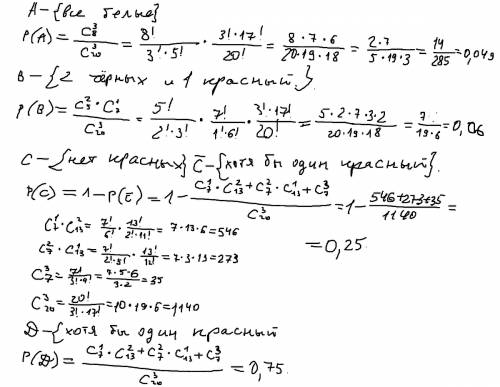 А – {все белые}
P(A) = C_8^3 / C_20^3 = 8! / (3!·5!) · 3!·17! / 20! = 8·7·6 / 20·19·18 = 2·7 / 5·19·3 = 14/285 = 0,049
В – {2 чёрных и 1 красный}.
P(B) = C_5^2·C_7^1 / C_20^3 = 5! / 2!·3! · 7! / 1!·6! · 3!·17! / 20! = 5·2·7·3·2 / 20·19·18 = 7 / 19·6 = 0,06
C – {нет красных} C̅ – {хотя бы один красный}.
P(C) = 1 – P(C̅) = 1 – (C_7^1·C_13^2 + C_7^2·C_13^1 + C_7^3) / C_20^3 = 1 – (546+273+35) / 1140 =
= 0,25.
C_7^1·C_13^2 = 7!/6! · 13!/2!·11! = 7·13·6 = 546
C_7^2·C_13^1 = 7!/2!·5! · 13!/12! = 7·3·13 = 273
C_7^3 = 7!/3!·4! = 7·5·6/3·2 = 35
C_20^3 = 20!/3!·17! = 10·19·6 = 1140
D – {хотя бы один красный
P(D) = (C_7^1·C_13^2 + C_7^2·C_13^1 + C_7^3) / C_20^3 = 0,75.